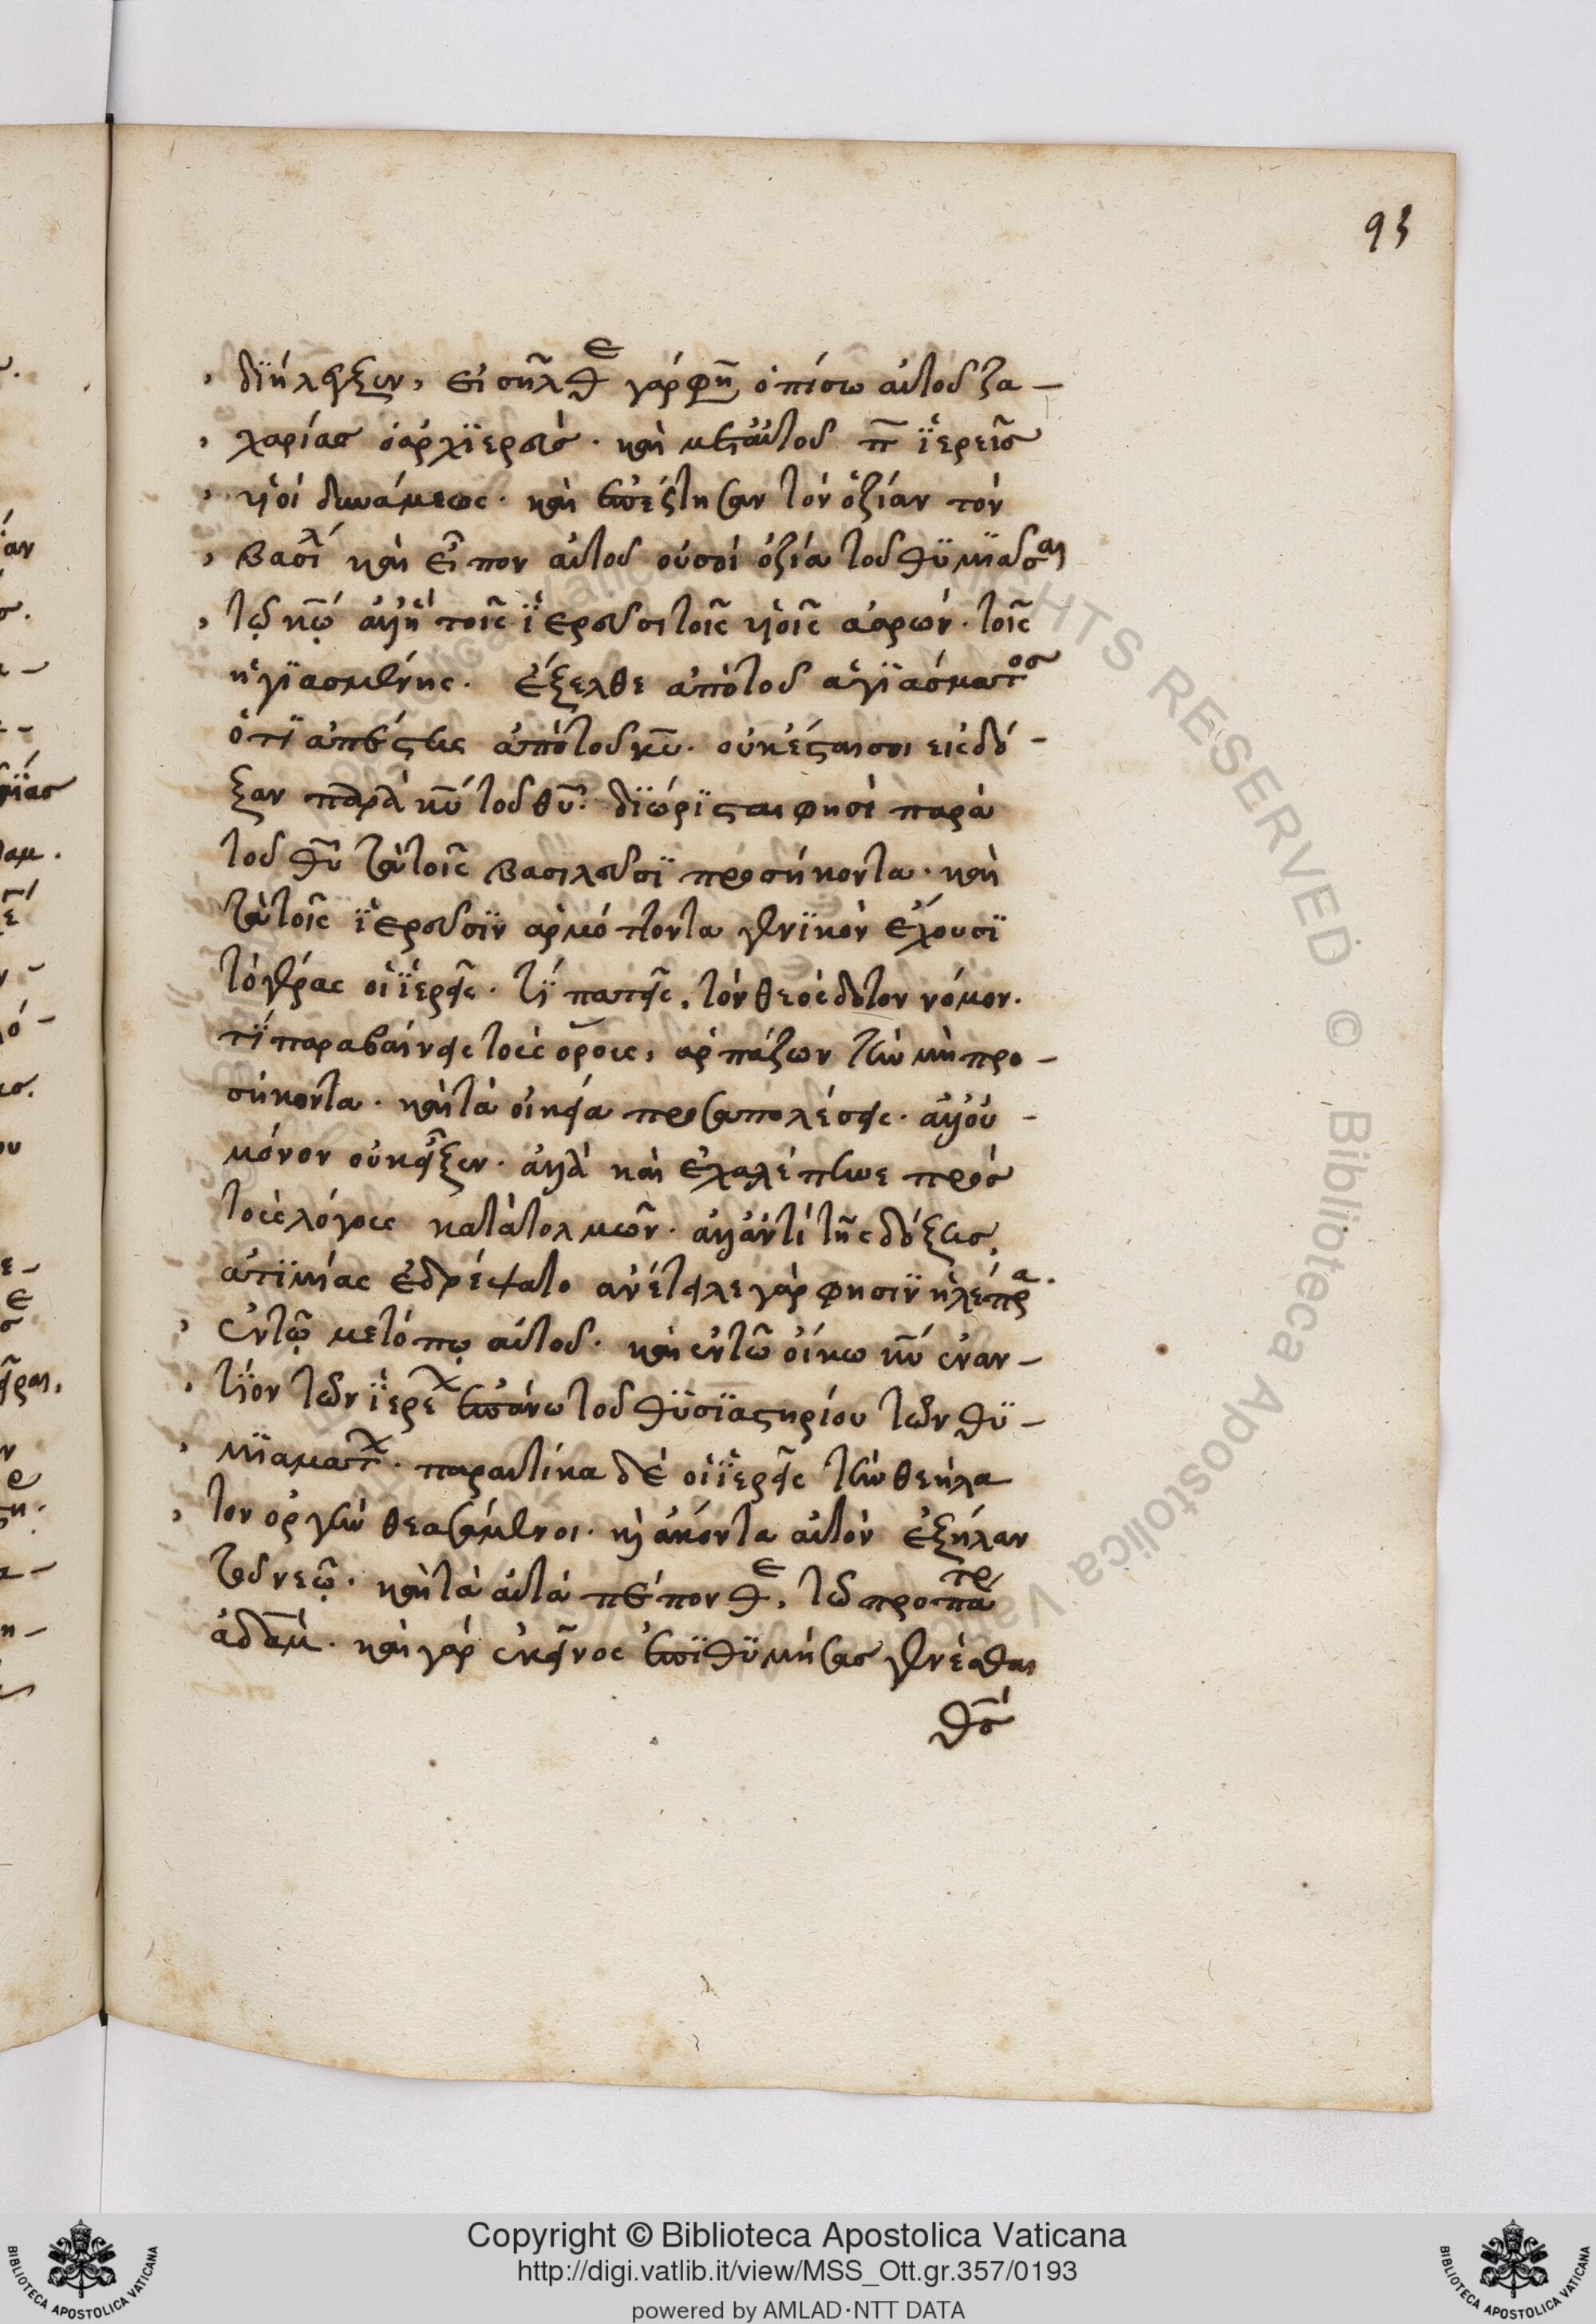 93
διήλεγξεν, εἰσῆλθε γάρ φη ὀπίσω αὐτοῦ ζα-
χαρίας ὁ ἀρχϊερεύς· καὶ μετ' αὐτοῦ π̅ ϊερεῖς
υἱοὶ δυνάμεως· καὶ ἐπέστησαν τὸν ὀζίαν τὸν
βασιλέα καὶ εἶπον αὐτοῦ οὐ σοὶ ὀζία τοῦ θϋμϊᾶσαι
τῷ κ̅ω̅ ἀλλ' ἢ τοῖς ϊερεῦσι τοῖς υἱοῖς ἀαρών· τοῖς
ἡγϊασμένης· ἔξελθε ἀπὸ τοῦ ἁγϊάσματος
ὅτϊ ἀπέστης ἀπὸ τοῦ κ̅υ̅· οὐκ ἔσται σοι εἰς δό-
ξαν παρὰ κ̅υ̅ τοῦ θ̅υ̅· δϊώρϊσται φησὶ παρὰ
τοῦ θ̅υ̅ τὰ τοῖς βασιλεῦσϊ προσήκοντα· καὶ
τὰ τοῖς ϊερεῦσϊν ἁρμόττοντα γενϊκὸν ἔχουσϊ
τὸ γέρας οἱ ϊερεῖς· τϊ πατεῖς, τὸν θεόσδοτον νόμον·
τϊ παραβαίνεις τοὺς ὅρους, ἁρπάζων τὴν μὴ προ-
σήκοντα· καὶ τὰ οἰκεῖα προσαπολέσεις· ἀλλ' οὐ
μόνον οὐκ εἶξεν· ἀλλὰ καὶ ἐχαλέπηνε πρὸς
τοὺς λόγους κατατολμῶν· ἀλλ' ἀντὶ τῆς δόξης,
ἀτϊμίας ἐδρέψατο ἀνέτειλε γάρ φησιν ἡ λέπρα·
ἐν τῷ μετόπῳ αὐτοῦ· καὶ ἐν τῷ οἴκω κ̅υ̅ ἐναν-
τϊον τῶν ϊερέων ἐπάνω τοῦ θϋσϊαστηρίου τῶν θϋ-
μϊαμάτων· παραυτίκα δὲ οἱ ϊερεῖς τὴν θεήλα
τον ὀργὴν θεασάμενοι· κ̀ ἄκοντα αὐτὸν ἐξήλαν
τοῦ νεῶ· καὶ τὰ αὐτὰ πέπονθε, τῶ προπάτρ
ἀδάμ· καὶ γὰρ ἐκεῖνος ἐπϊθϋμήσας γενέσθαι
θ̅ς̅